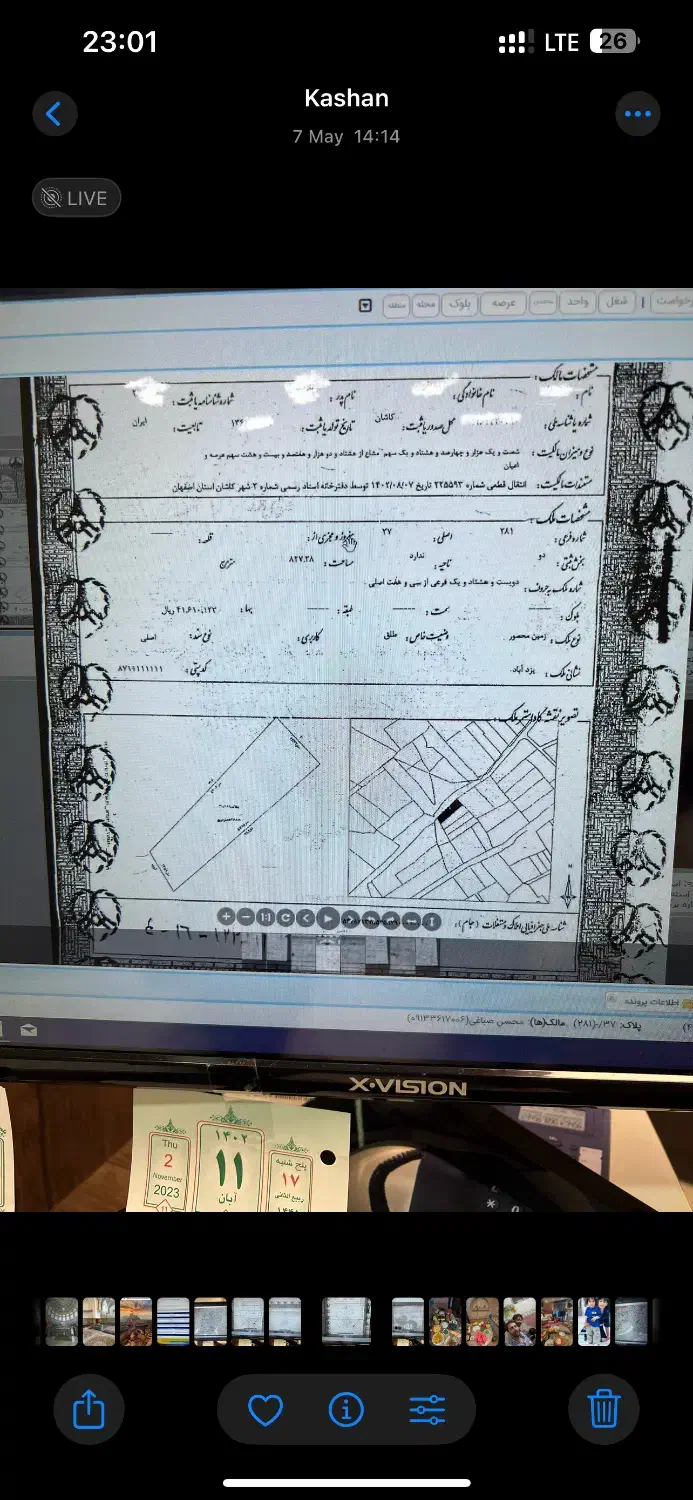 23:01
LTE 26
Kashan
7 May 14:14
LIVE
درخواست | شغل واحد عرصه بلوک محله منطقه
مشخصات مالک :
نام : نام خانوادگی : نام پدر : شماره شناسنامه یا ثبت :
شماره یا شناسه ملی : محل صدور یا ثبت : کاشان تاریخ تولد یا ثبت : تابعیت : ایران
نوع و میزان مالکیت : شصت و یک هزار و چهارصد و هشتاد و یک سهم مشاع از هشتاد و دو هزار و هفتصد و بیست و هشت سهم عرصه و
اعیان
مستندات مالکیت : انتقال قطعی شماره ۲۲۵۵۹۳ تاریخ ۱۴۰۲/۰۸/۰۷ توسط دفترخانه اسناد رسمی شماره ۳ شهر کاشان استان اصفهان
مشخصات ملک :
شماره فرعی : ۲۸۱ اصلی : ۳۷ مفروز و مجزی از : قطعه :
بخش ثبتی : دو ناحیه : ندارد مساحت : ۸۲۷.۲۸ مترمربع
شماره ملک به حروف : دویست و هشتاد و یک فرعی از سی و هفت اصلی
بلوک : سمت : طبقه : بها : ۴۱,۶۱۰,۱۲۳ ریال
نوع ملک : زمین محصور وضعیت خاص : طلق کاربری : نوع سند : اصلی
نشانی ملک : یزد آباد کدپستی : ۸۷۱۹۱۱۱۱۱۱
تصویر نقشه کاداستر ملک :
شناسه ملی جغرافیایی املاک و مستغلات (جام) :
اطلاعات پرونده
پلاک: ۳۷/-(۲۸۱) مالک(ها): محسن صباغی(۰۹۱۳۳۶۱۷۰۰۶)
X·VISION
Thu
2
November
2023
۱۴۰۲
۱۱
آبان
پنج شنبه
۱۷
ربیع الثانی